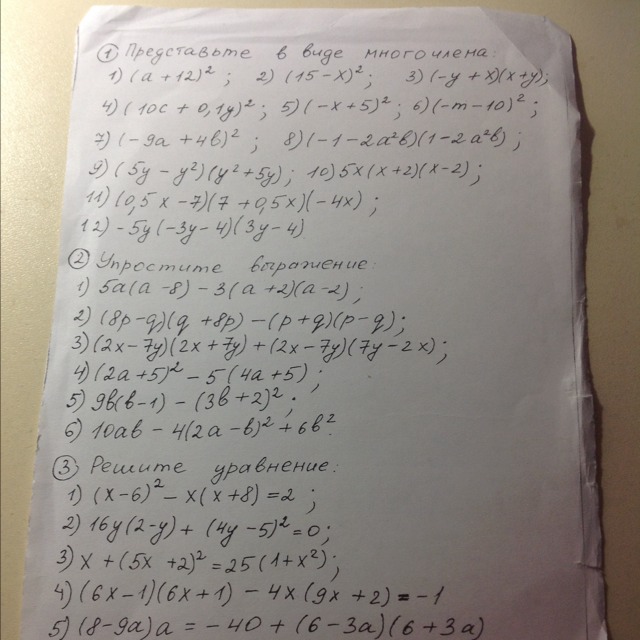 ① Представьте в виде многочлена:
1) (a + 12)²; 2) (15 - x)²; 3) (-y + x)(x + y);
4) (10c + 0,1y)²; 5) (-x + 5)²; 6) (-m - 10)²;
7) (-9a + 4b)²; 8) (-1 - 2a²b)(1 - 2a²b);
9) (5y - y²)(y² + 5y); 10) 5x(x + 2)(x - 2);
11) (0,5x - 7)(7 + 0,5x)(-4x);
12) -5y(-3y - 4)(3y - 4)
② Упростите выражение:
1) 5a(a - 8) - 3(a + 2)(a - 2);
2) (8p - q)(q + 8p) - (p + q)(p - q);
3) (2x - 7y)(2x + 7y) + (2x - 7y)(7y - 2x);
4) (2a + 5)² - 5(4a + 5);
5) 9b(b - 1) - (3b + 2)²;
6) 10ab - 4(2a - b)² + 6b².
③ Решите уравнение:
1) (x - 6)² - x(x + 8) = 2;
2) 16y(2 - y) + (4y - 5)² = 0;
3) x + (5x + 2)² = 25(1 + x²);
4) (6x - 1)(6x + 1) - 4x(9x + 2) = -1
5) (8 - 9a)a = -40 + (6 - 3a)(6 + 3a)